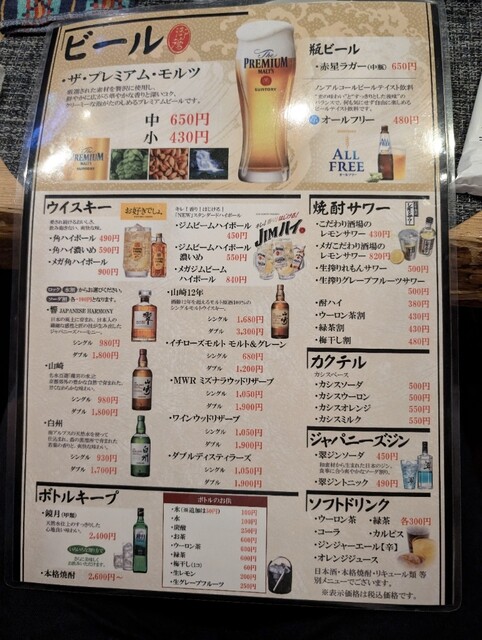 ビール
・ザ・プレミアム・モルツ
厳選された素材を贅沢に使用し、
中 650円
小 430円
The
PREMIUM
MALT'S
SUNTORY
PREMIUM
瓶ビール
・赤星ラガー(中瓶) 650円
ノンアルコールビールテイスト飲料
オールフリー 480円
ALL
FREE
ウイスキー
・角ハイボール 490円
・角ハイ濃いめ 590円
・メガ角ハイボール
900円
お好きでしょ。
「NEW」スタンダードハイボール
・ジムビームハイボール
450円
・ジムビームハイボール
濃いめ 550円
・メガジムビーム
ハイボール 840円
JIMハイ。
ロック 水割 からお選びください。
・響 JAPANESE HARMONY
シングル 980円
ダブル 1,800円
・山崎
シングル 980円
ダブル 1,800円
・白州
シングル 930円
ダブル 1,700円
・山崎12年
シングルモルトウイスキー。
シングル 1,680円
ダブル 3,300円
・イチローズモルト モルト&グレーン
シングル 680円
ダブル 1,200円
・MWR ミズナラウッドリザーブ
シングル 1,050円
ダブル 1,900円
・ワインウッドリザーブ
シングル 1,050円
ダブル 1,900円
・ダブルディスティラーズ
シングル 1,050円
ダブル 1,900円
焼酎サワー
・こだわり酒場の
レモンサワー 430円
・メガこだわり酒場の
レモンサワー 820円
・生搾りれもんサワー 500円
・生搾りグレープフルーツサワー
500円
・酎ハイ 380円
・ウーロン茶割 430円
・緑茶割 430円
・梅干し割 480円
カクテル
カシスベース
・カシスソーダ 500円
・カシスウーロン 500円
・カシスオレンジ 550円
・カシスミルク 550円
ジャパニーズジン
・翠ジンソーダ 450円
・翠ジントニック 490円
ボトルキープ
・鏡月(甲類)
2,400円
・本格焼酎 2,600円～
ボトルのお供
・水
・炭酸
・お茶
・ウーロン茶
・緑茶
・梅干し
・生レモン
・生グレープフルーツ
ソフトドリンク
・ウーロン茶 ・緑茶 各300円
・コーラ ・カルピス
・ジンジャーエール【辛】
・オレンジジュース
日本酒・本格焼酎・リキュール類 等
別メニューでございます。
※表示価格は税込価格です。